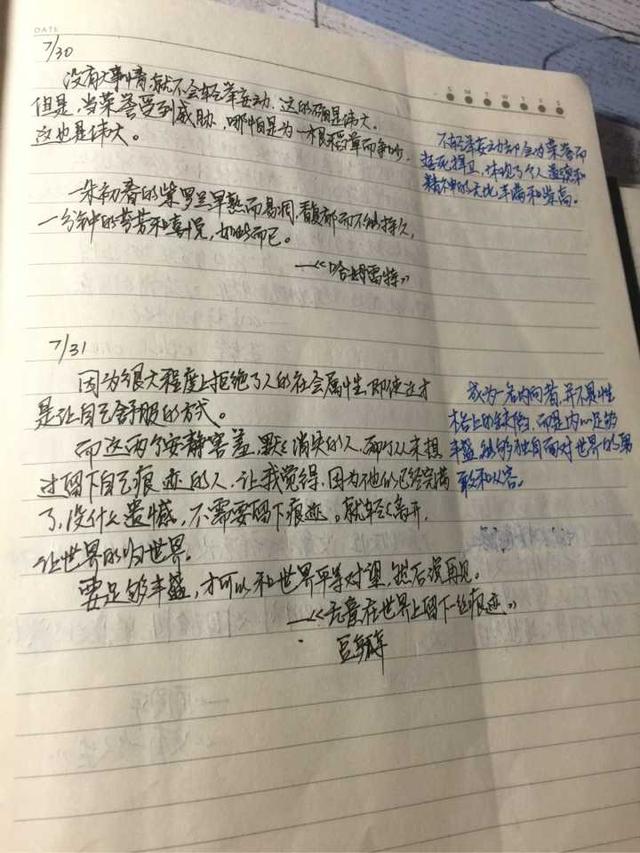 DATE
7/30
S M T W T F S
没有大事情,就不会轻举妄动,这的确是伟大。
但是,当荣誉受到威胁,哪怕是为一根稻草而争吵,
这也是伟大。
不轻举妄动却会为荣誉而
拯死捍卫,体现了个人 和
精神的 丰满和崇高。
一朵初春的紫罗兰早熟而易凋,馥郁而不能持久,
一分钟的芬芳和喜悦,如此而已。
——《哈姆雷特》
7/31
因为很大程度上拒绝了人的社会属性,即使这才
是让自己舒服的方式。
而这两个安静害羞,默默消失的人,两个从来想
过留下自己痕迹的人,让我觉得,因为他们已经完满
了,没什么遗憾,不需要留下痕迹。就轻轻离开,
让世界的归世界。
要足够丰盛,才可以和世界平等对望,然后说再见。
成为一名内向者,并不是性
格上的缺陷,而是内心足够
丰盛,能够独自面对世界的勇
敢和从容。
——《无意在世界上留下一丝痕迹》